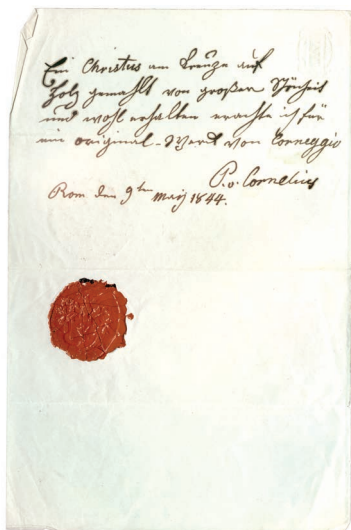 Ein Christus am Kreuze auf
Holz gemahlt von großer Schönheit
und wohl erhalten erachte ich für
ein original-Werk von Correggio
P. v. Cornelius
Rom den 9ten May 1844.